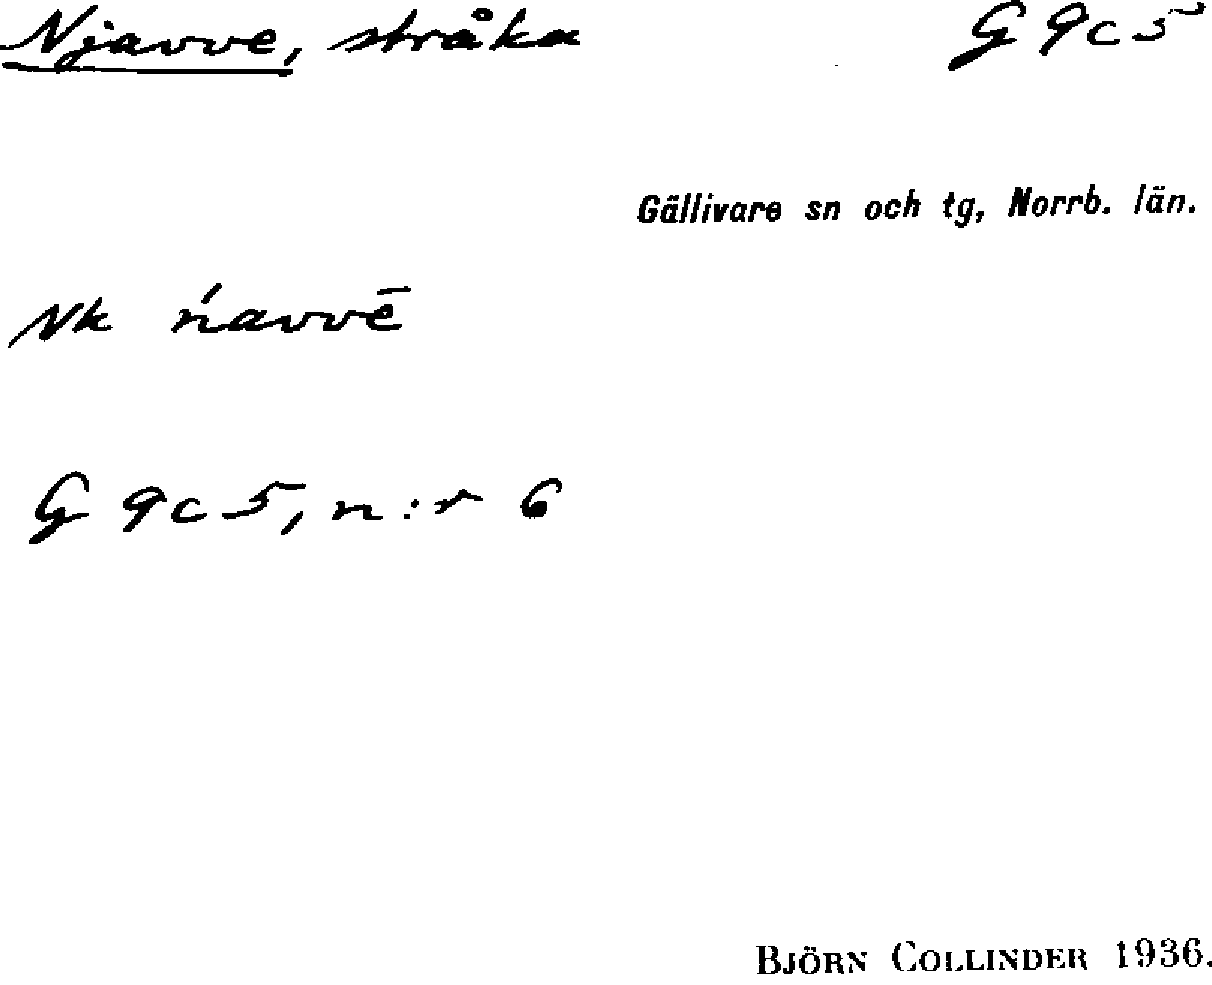 Njavve, stråka G 9c5
Gällivare sn och tg, Norrb. län.
Nk ńavvē
G 9c5, n:r 6
BJÖRN COLLINDER 1936.